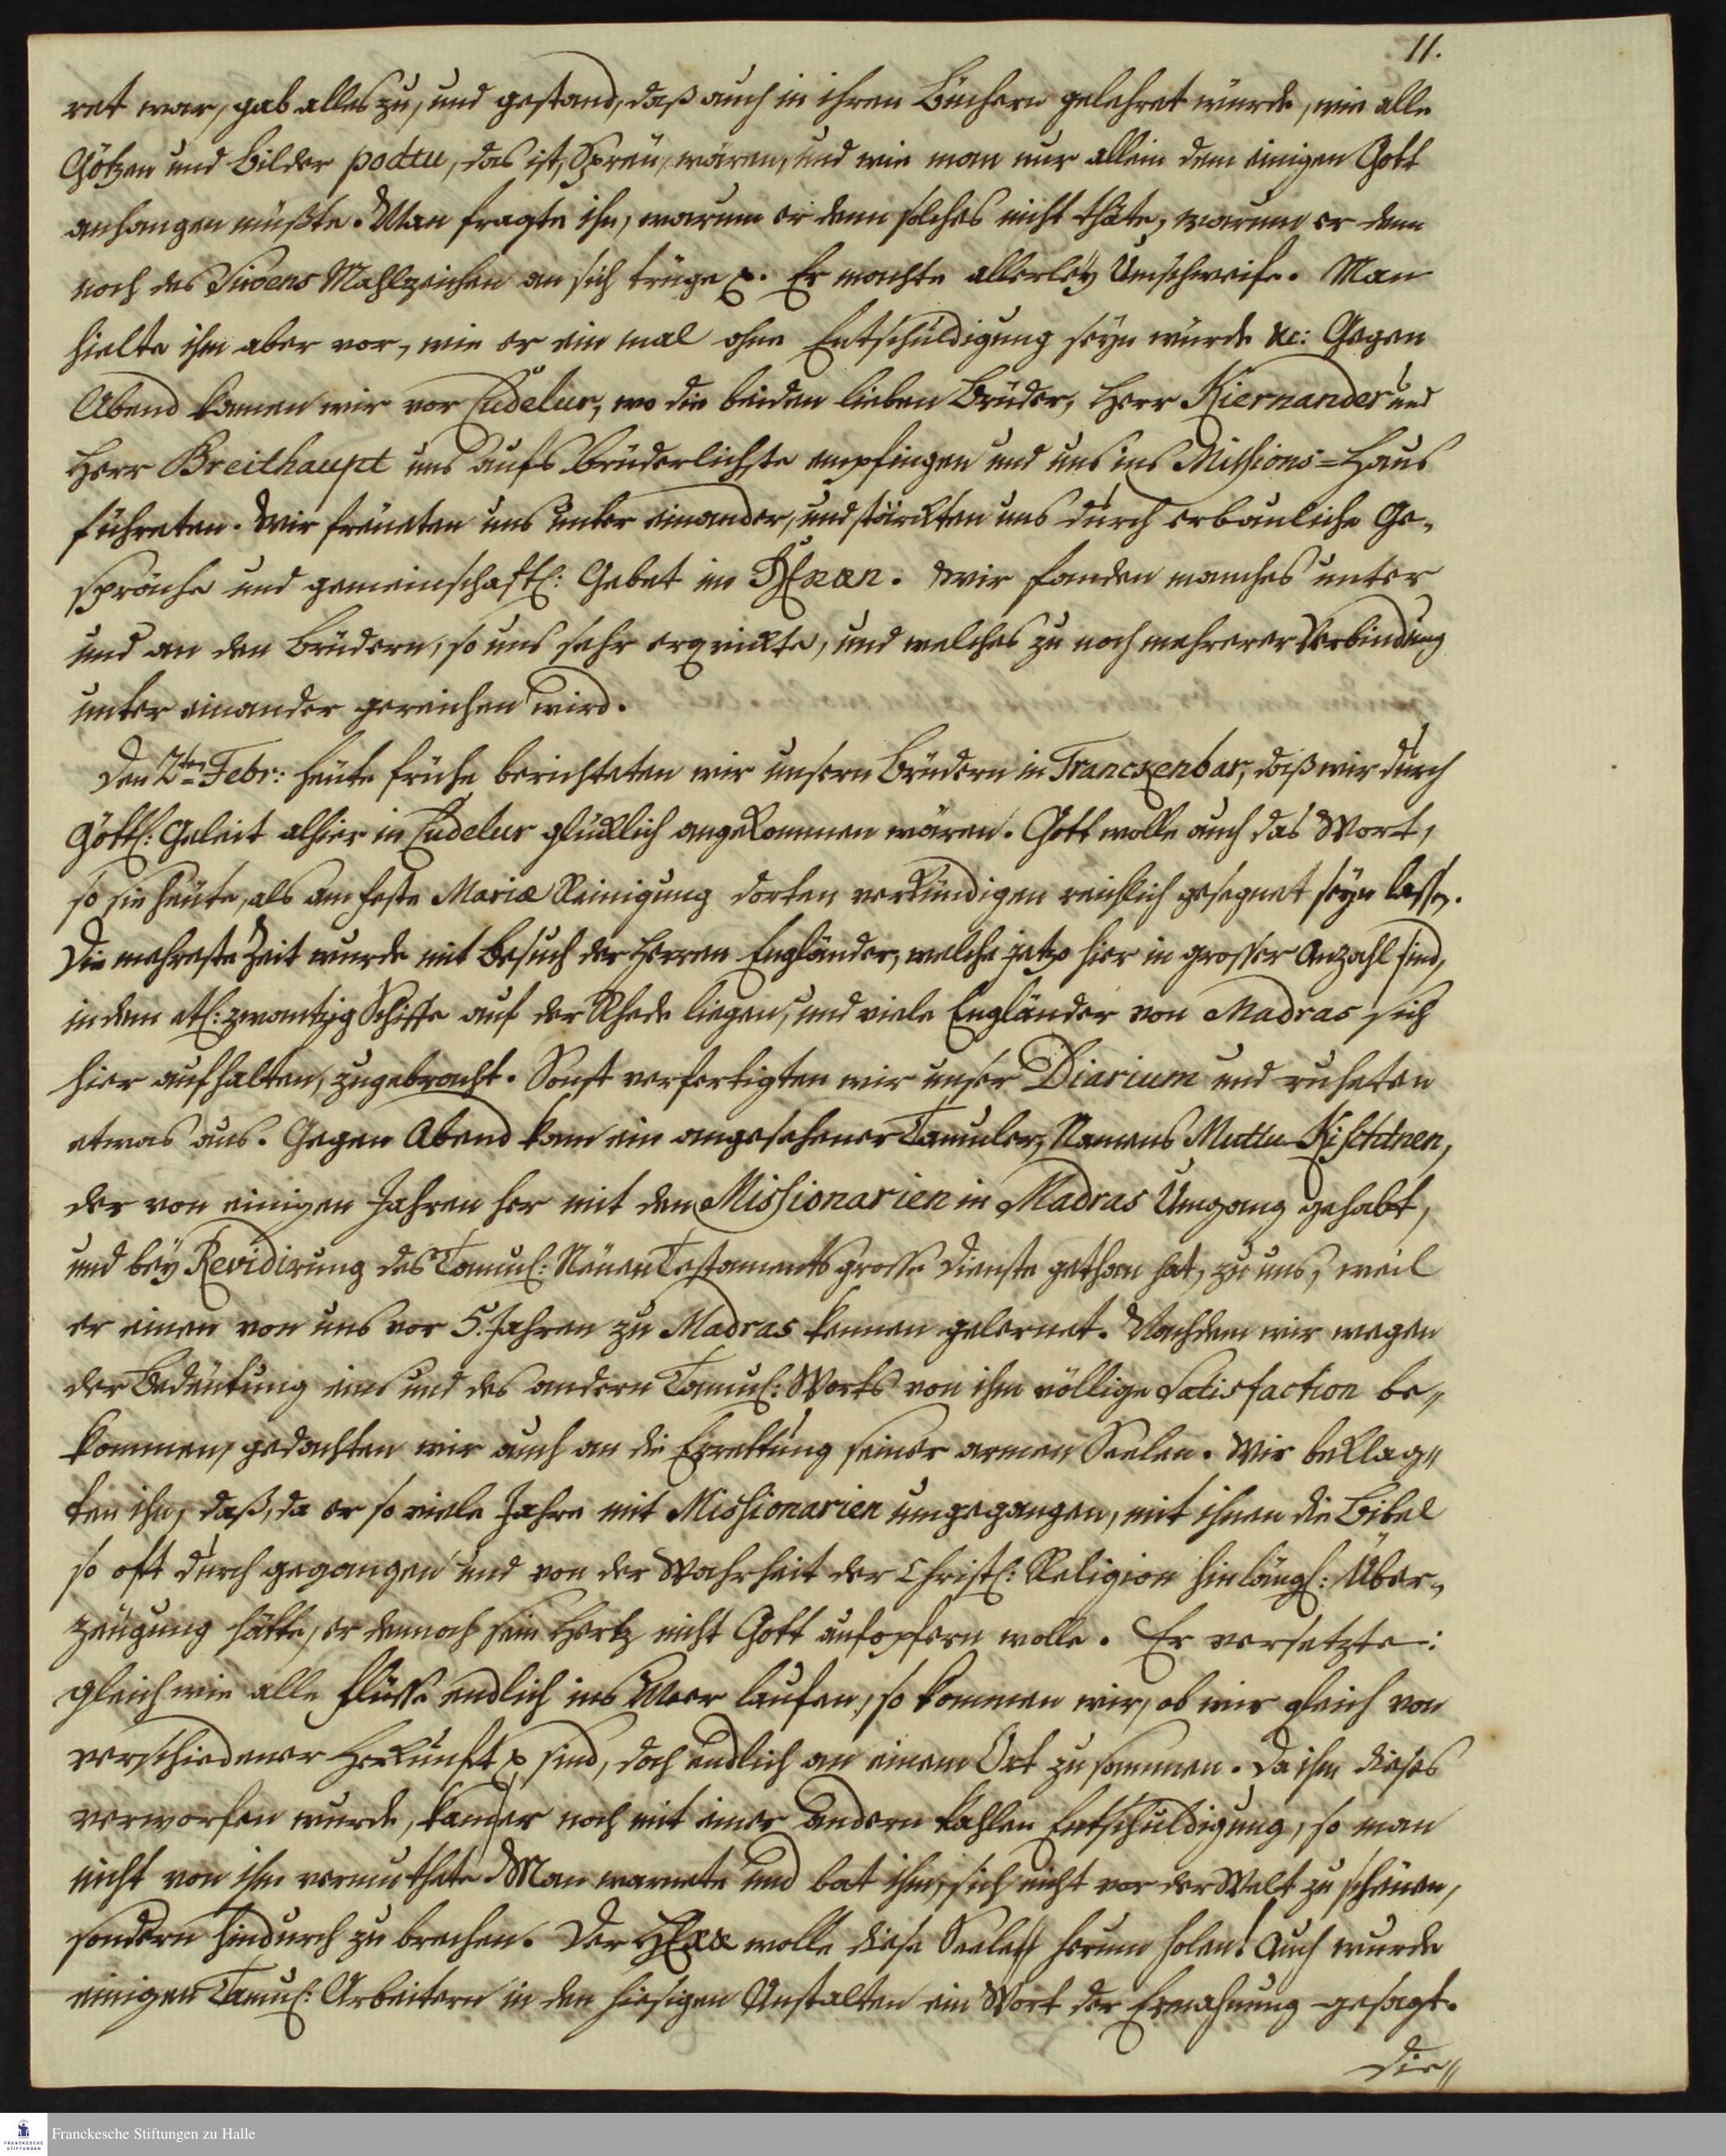 11.
ret war, gab alles zu, und gestand, daß auch in ihren Büchern gelehret würde, wie alle
Götzen und Bilder poddu, das ist, Spreu, wären, und wie man nur allein dem einigen Gott
anhangen müßte. Man fragte ihn, warum er denn solches nicht thäte, warum er denn
noch des Siwens Mahlzeichen an sich trüge p. Er machte allerley Umschweife. Man
hielte ihm aber vor, wie er ein mal ohne Entschuldigung seyn würde &c: Gegen
Abend kamen wir vor Cudelur, wo die beiden lieben Brüder, Herr Kiernander und
Herr Breithaupt uns aufs brüderlichste empfingen und uns ins Missions=Haus
führeten. Wir freueten uns unter einander, und stärckten uns durch erbauliche Ge-
spräche und gemeinschaftl: Gebet im HErrn. Wir fanden manches unter
und an den Brüdern, so uns sehr erquickte, und welches zu noch mehrerer Verbindung
unter einander gereichen wird.
Den 2ten Febr: heute frühe berichteten wir unsern Brüdern in Tranckenbar, daß wir durch
Göttl: Geleit alhier in Cudelur glücklich angekommen wären. Gott wolle auch das Wort,
so sie heute, als am Feste Mariæ Reinigung dorten verkündigen reichlich gesegnet seyn lassen.
Die mehreste Zeit wurde mit Besuch der Herren Engländer, welche jetzo hier in grosser Anzahl sind,
indem etl: zwantzig Schiffe auf der Rhede liegen, und viele Engländer von Madras sich
hier aufhalten, zugebracht. Sonst verfertigten wir unser Diarium und ruheten
etwas aus. Gegen Abend kam ein angesehener Tamuler, Namens Muttu Kischtnen,
der von einigen Jahren her mit den Missionarien in Madras Umgang gehabt,
und bey Revidirung des Tamul: Neuen Testaments grosse Dienste gethan hat, zu uns, weil
er einen von uns vor 5. Jahren zu Madras kennen gelernet. Nachdem wir wegen
der Bedeutung eins und des andern Tamul: Worts von ihm völlige Satisfaction be-
kommen, gedachten wir auch an die Errettung seiner armen Seelen. Wir beklag-
ten ihn, daß, da er so viele Jahre mit Missionarien umgegangen, mit ihnen die Bibel
so oft durch gegangen und von der Wahrheit der Christl: Religion hinlängl: Über-
zeugung hätte, er dennoch sein Hertz nicht Gott aufopfern wolle. Er versetzte:
gleich wie alle Flüsse endlich ins Meer laufen, so kommen wir, ob wir gleich von
verschiedener Herkunft p sind, doch endlich an einem Ort zusammen. Da ihm dieses
verworfen wurde, kam er noch mit einer andern kahlen Entschuldigung, so man
nicht von ihm vermuthete. Man warnete und bat ihn, sich nicht vor der Welt zu scheuen,
sondern hindurch zu brechen. Der HErr wolle diese Seele herum holen! Auch wurde
einigen Tamul: Arbeitern in den hiesigen Anstalten ein Wort der Ermahnung gesagt.
Die-
Franckesche Stiftungen zu Halle
FRANCKESCHE STIFTUNGEN